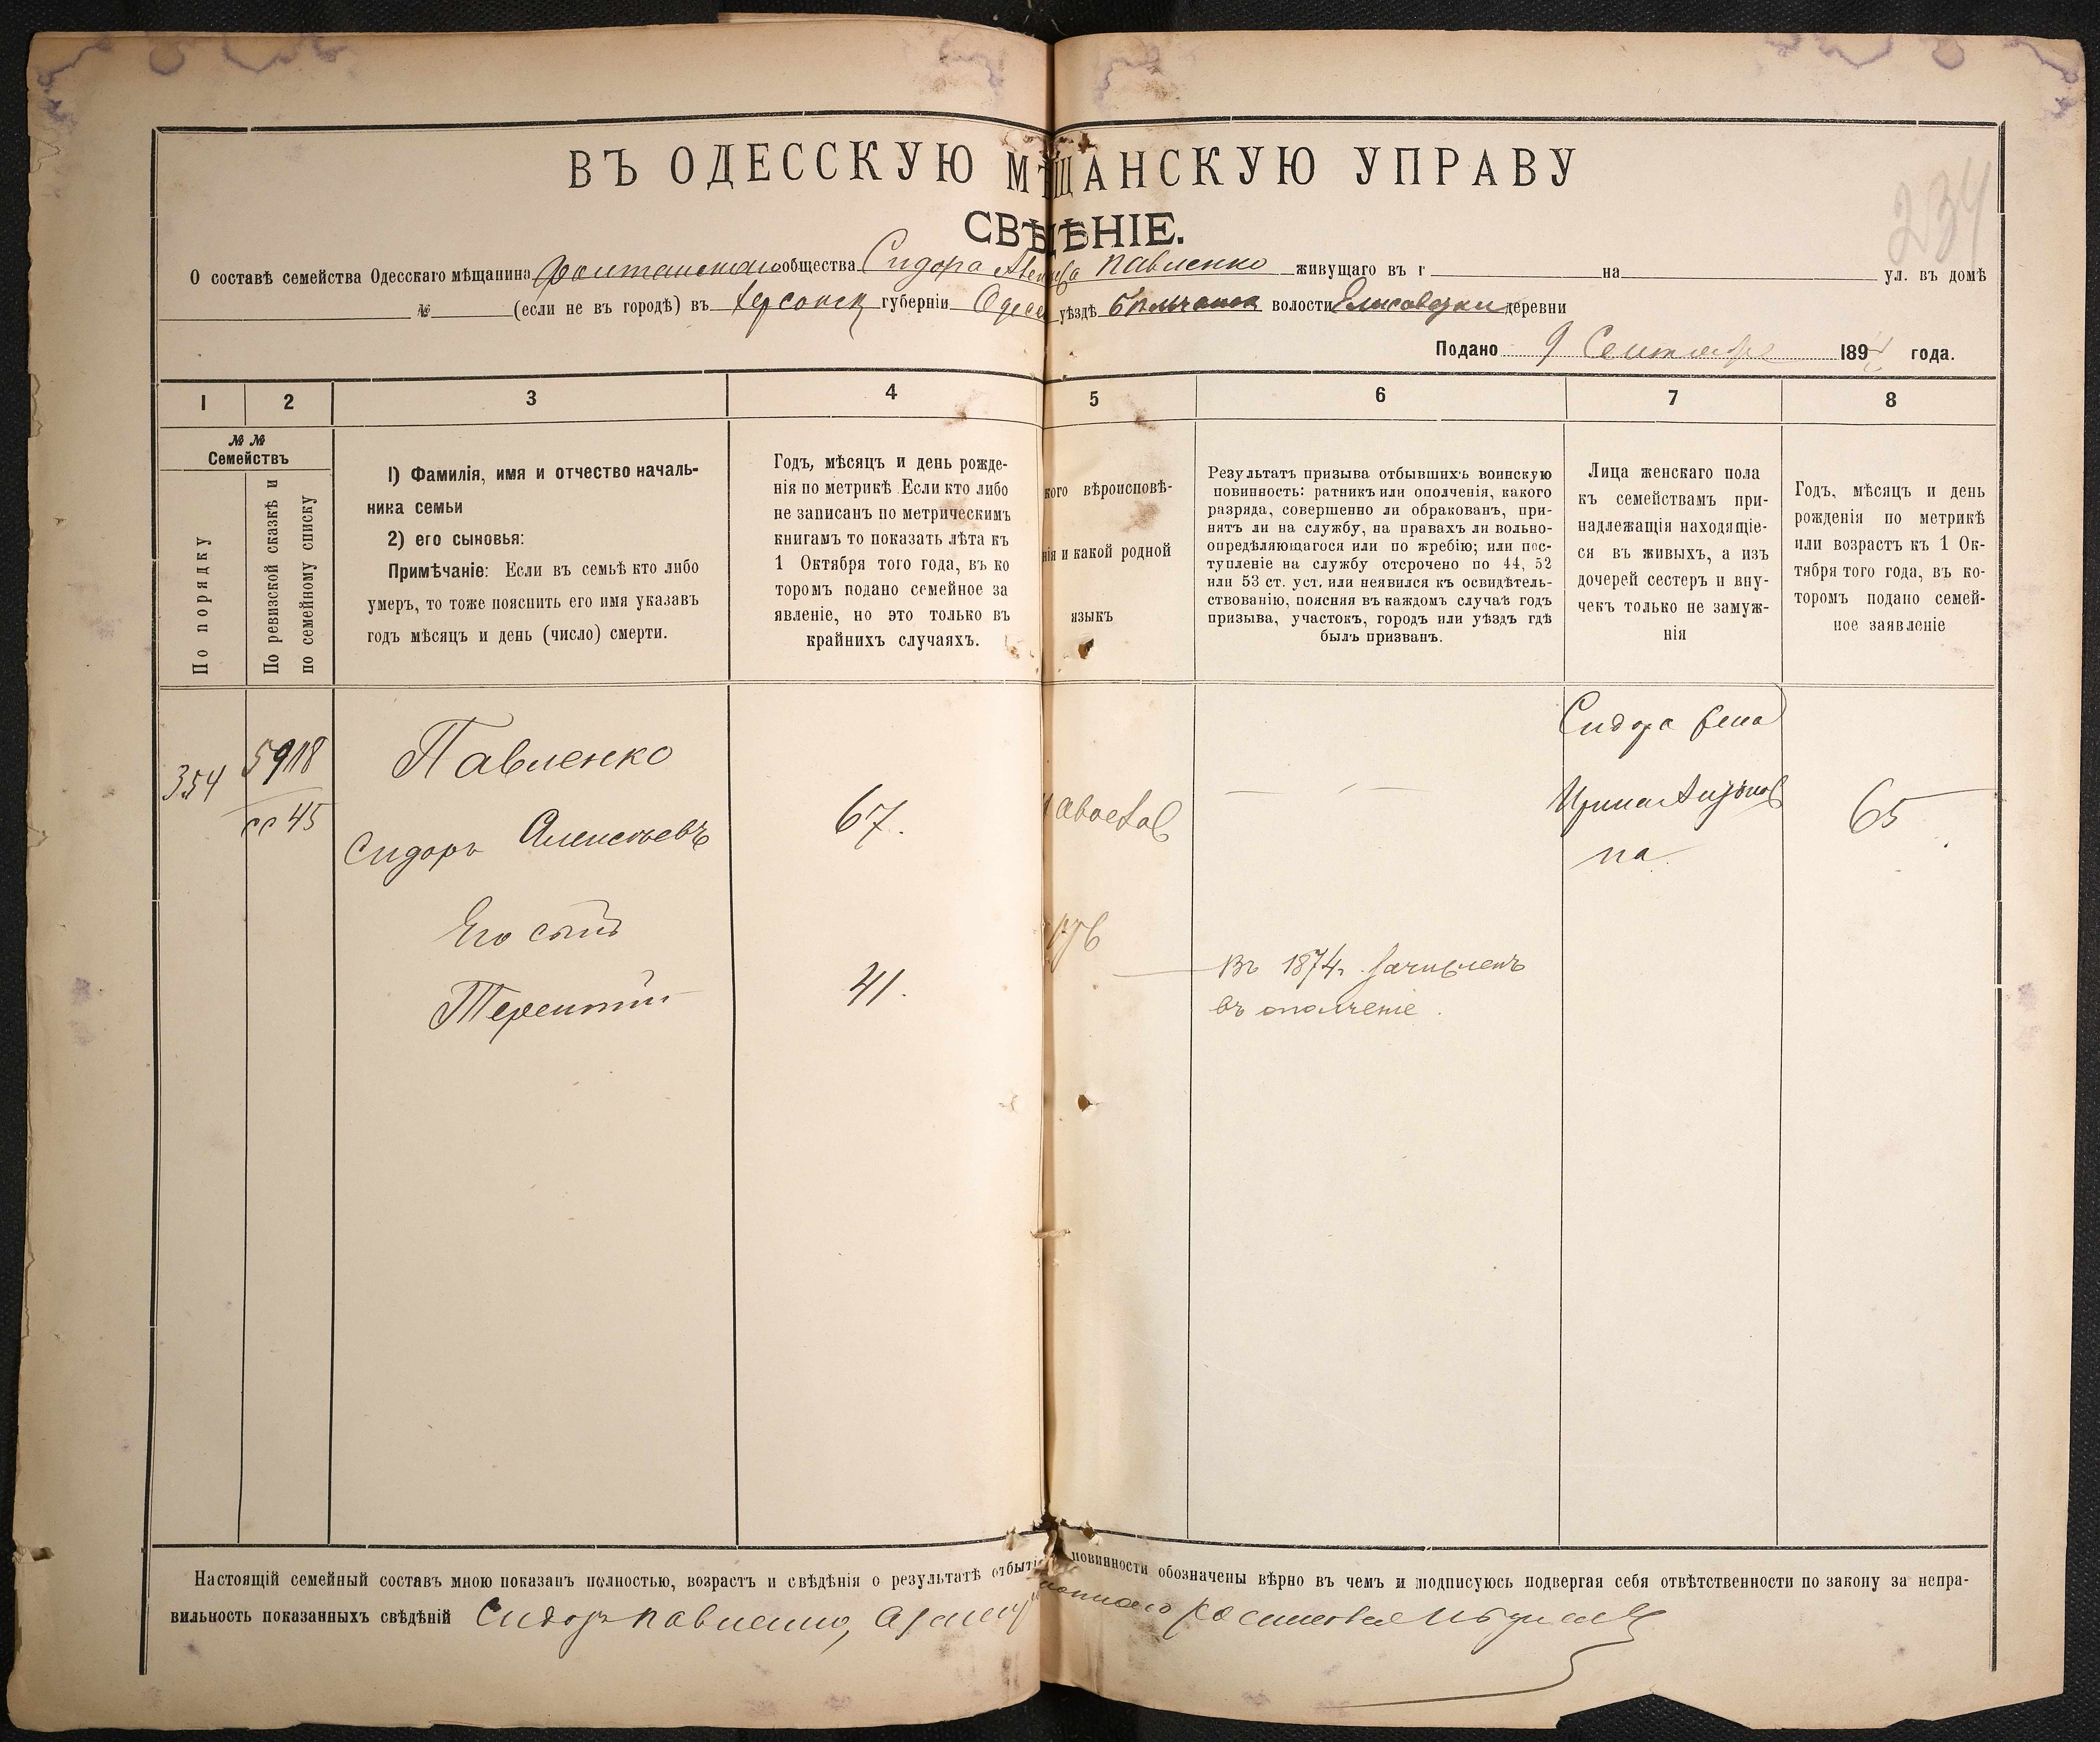 234
ВЪ ОДЕССКУЮ МѢЩАНСКУЮ УПРАВУ
СВѢДѢНІЕ.
О составѣ семейства Одесскаго мѣщанина Фонтанскаго общества Сидора Павленко живущаго въ г на ул. въ домѣ
№ (если не въ городѣ) въ Херсонск губерніи Одесс уѣздѣ волости Елисаветки деревни
Подано 9 Сентября 189 года.
1 2 3 4 5 6 7 8
№ №
Семействъ
По порядку
По ревизской сказкѣ и
по семейному списку
1) Фамилія, имя и отчество началь-
ника семьи
2) его сыновья:
Примѣчаніе: Если въ семьѣ кто либо
умеръ, то тоже пояснить его имя указавъ
годъ мѣсяцъ и день (число) смерти.
Годъ, мѣсяцъ и день рожде-
нія по метрикѣ Если кто либо
не записанъ по метрическимъ
книгамъ то показать лѣта къ
1 Октября того года, въ ко
торомъ подано семейное за
явленіе, но это только въ
крайнихъ случаяхъ.
кого вѣроисповѣ-
нія и какой родной
языкъ
Результатъ призыва отбывшихъ воинскую
повинность: ратникъ или ополченія, какого
разряда, совершенно ли обракованъ, при-
нятъ ли на службу, на правахъ ли вольно-
опредѣляющагося или по жребію; или пос-
тупленіе на службу отсрочено по 44, 52
или 53 ст. уст. или неявился къ освидѣтель-
ствованію, поясняя въ каждомъ случаѣ годъ
призыва, участокъ, городъ или уѣздъ гдѣ
былъ призванъ.
Лица женскаго пола
къ семействамъ при-
надлежащія находящіе-
ся въ живыхъ, а изъ
дочерей сестеръ и вну-
чекъ только не замуж-
нія
Годъ, мѣсяцъ и день
рожденія по метрикѣ
или возрастъ къ 1 Ок-
тября того года, въ ко-
торомъ подано семей-
ное заявленіе
354
5918
45
Павленко
Сидоръ Алексѣевъ
67.
Сидора жена
Ирина Антонов
на
65
Его сынъ
Терентій
41.
Въ 1874г. зачисленъ
въ ополченіе.
Настоящій семейный составъ мною показанъ полностью, возрастъ и свѣдѣнія о результатѣ отбытія повинности обозначены вѣрно въ чемъ и подписуюсь подвергая себя отвѣтственности по закону за непра-
вильность показанныхъ свѣдѣній Сидоръ Павленко,